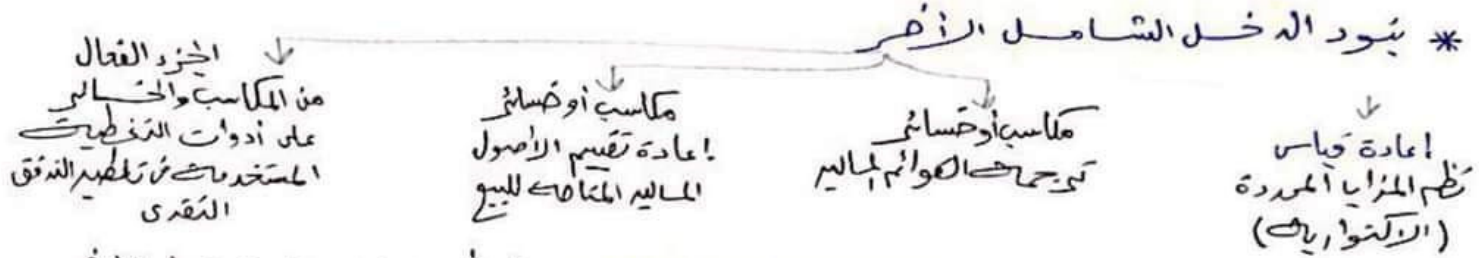 * بنود الدخل الشامل الآخر
إعادة قياس
نظم المزايا المحددة
(الاكتوارية)
مكاسب أو خسائر
ترجمة القوائم المالية
مكاسب أو خسائر
إعادة تقييم الأصول
المالية المتاحة للبيع
الجزء الفعال
من المكاسب والخسائر
على أدوات التغطية
المستخدمة في تغطية التدفق
النقدي